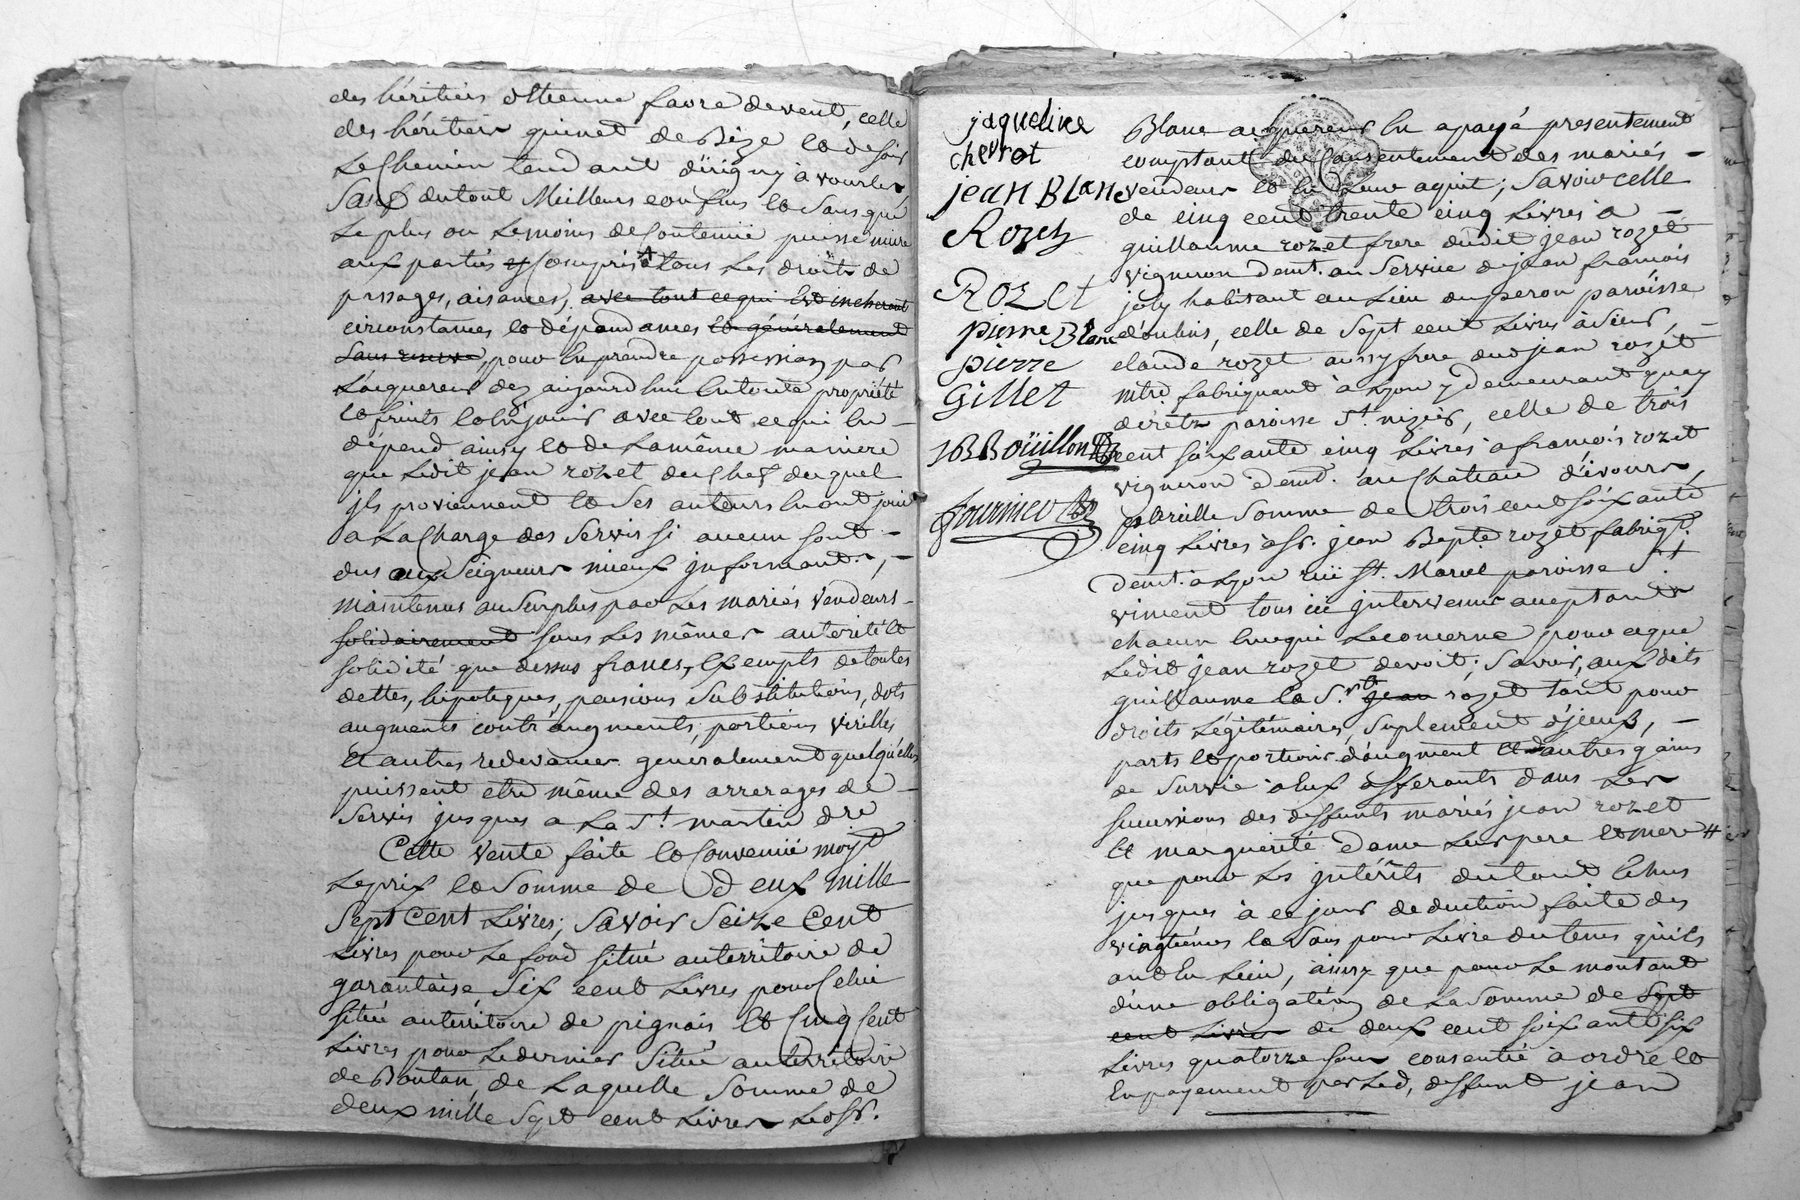 des héritiers d'Etienne favre devent, celle
des héritiers quinet de Bize et de soir
Le Chemin tendant d'irigny à vourles
Sauf du tout Meilleurs confins et sans que
Le plus ou Le moins de Contenüe puisse nuire
aux parties y Compris tous Les droits de
passages, aisances, avec tout ce qui Est incherant
circonstances et dépendances et généralement
sans reserve, pour En prendre possession par
L'acquereur dez aujourd'hui En toute propriété
et fruits et En jouir avec tout ce qui En
dépend ainsy et de La même maniere
que Ledit jean rozet du Chef duquel
jls proviennent et Ses auteurs En ont joui
a La Charge des Servis si aucun sont
dus aux Seigneurs mieux jnformant.,
maintenus au Surplus par Les mariés Vendeurs
solidairement sous Les mêmes autorité et
solidité que dessus francs, Exempts de toutes
dettes, hipoteques, pensions Substitutions, dots
augments contr'augments, portions viriles
Et autres redevances generalement quelqu'elles
puissent etre même des arrerages de
Servis jusques a La St. martin dre
Cette Vente faite et Convenüe moyt
Le prix et Somme de Deux Mille
Sept Cent Livres; Savoir Seize Cent
Livres pour Le fond situé au territoire de
garantaise Six cent Livres pour Celui
situé au territoire de pignais Et Cinq Cent
Livres pour Le dernier Situé au territoire
de Boutan, de Laquelle Somme de
deux mille Sept cent Livres Led. Sr.
jaqueline
chevrot
jean Blanc
Rozet
ROZET
pierre Blanc
pierre
Gillet
JB Boüillond
fournier
Blanc acquereur En a payé presentement
comptant du Consentement des mariés
vendeurs et En Leur aquit; Savoir celle
de cinq cent trente cinq Livres a
guillaume rozet frere dudit jean rozet
vigneron demt. au Service de jean francois
joly habitant au Lieu du peron paroisse
d'oulins, celle de Sept cent Livres à Sieur
claude rozet aussy frere dud jean rozet
mtre. fabriquant à Lyon y demeurant quay
de rétz paroisse St. nizier, celle de trois
cent soixante cinq Livres a francois rozet
vigneron demt. au Chateau d'ivours,
pareille Somme de trois cent soixante
cinq Livres à Sr. jean Bapte. rozet fabriqt.
demt. a Lyon rüe St. Marcel paroisse St.
vincent tous ici jntervenus acceptants
chacun En ce qui Le concerne pour ce que
Ledit jean rozet devoit; Savoir, aux dits
guillaume et Srs. jean rozet tant pour
droits Légitimaires, Suplement d'jceux,
parts et portions d'augment et d'autres gains
de Survie à Eux afferants dans Les
successions des deffunts mariés jean rozet
Et marguerite dame Leurs pere et mere #
que pour Les jntérêts du tout Echus
jusques à ce jour deduction faite des
vingtiémes et Sous pour Livre du tems qu'ils
ont Eu Lieu, ainsy que pour Le montant
d'une obligation de La Somme de Sept
cent Livres de deux cent soixante six
Livres quatorze sous consentie à ordre et
En payement par Led, deffunt jean